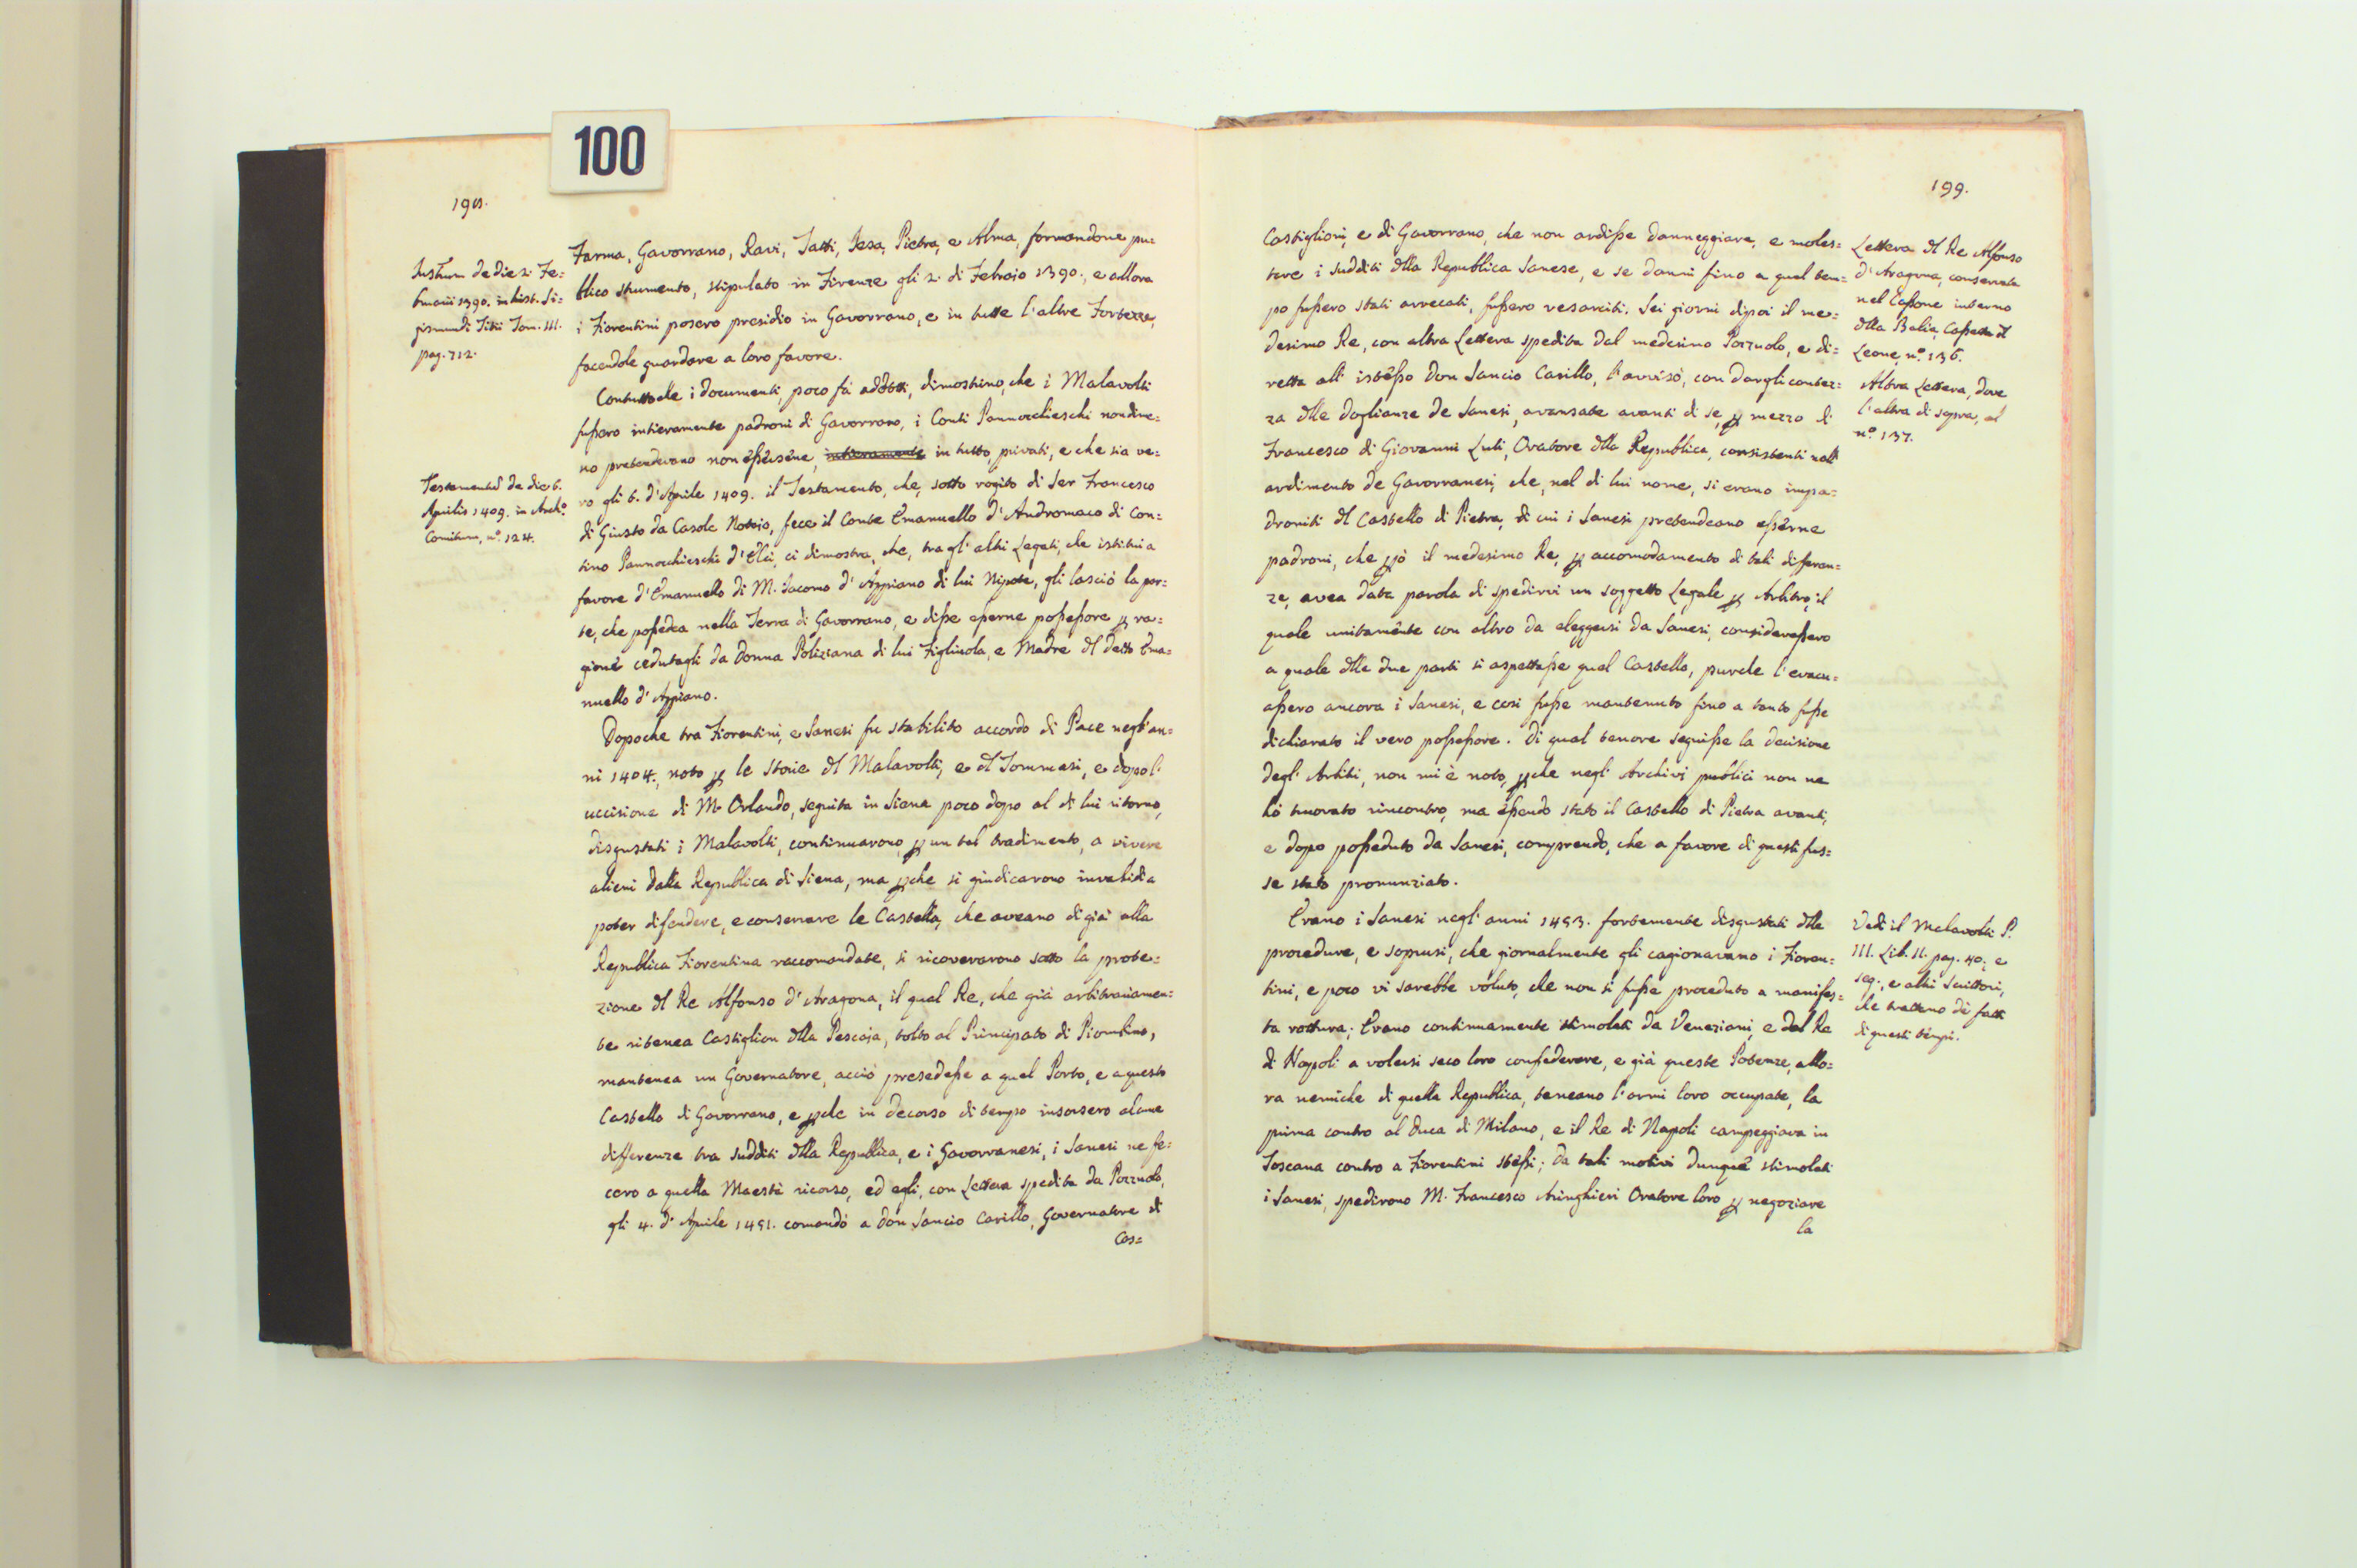 100
198.
Instrum de die 2. Fe=
bruarii 1390. in hist. Si=
gismundi Titii Tom. III.
pag. 712.
Farma, Gavorrano, Ravi, Tatti, Pietra, e Alma, formandone pu=
blico strumento, stipulato in Firenze gli 2. di Febraio 1390., e allora
i Fiorentini posero presidio in Gavorrano, e in tutte l'altre Fortezze,
facendole guardare a loro favore.
Contuttoche i documenti, poco fá addotti, dimostrino, che i Malavolti
fussero intieramente padroni di Gavorrano, i Conti Pannocchieschi nondime=
no pretendevano non essersene, intieramente in tutto, privati, e che sia ve=
Testamentũ de die 6.
Aprilis 1409. in Archo.
Comitum, n.º 124.
ro gli 6. d'Aprile 1409. il Testamento, che, sotto rogito di Ser Francesco
di Giusto da Casole Notaio, fece il Conte Emanuello d'Andromaco di Con=
tino Pannocchieschi d'Elci, ci dimostra, che, tra gl'altri Legati, che istituí a
favore d'Emanuello di M. Iacomo d'Appiano di lui Nipote, gli lasció la par=
te, che possedea nella Terra di Gavorrano, e disse esserne possessore ꝑ ra=
gioni cedutegli da Donna Poliziana di lui Figliuola, e Madre dl detto Ema=
nuello d'Appiano.
Dopoche tra Fiorentini, e Sanesi fu stabilito accordo di Pace negl'an=
ni 1404., noto ꝑ le Storie dl Malavolti, e dl Tommasi, e dopo l'
uccisione di M. Orlando, seguita in Siena poco dopo al di lui ritorno,
disgustati i Malavolti, continuarono, ꝑ un tal tradimento, a vivere
alieni dalla Republica di Siena, ma ꝑche si giudicarono invalidi a
poter difendere, e conservare le Castella, che aveano di giá alla
Republica Fiorentina raccomandate, si ricoverarono sotto la prote=
zione dl Re Alfonso d'Aragona, il qual Re, che giá arbitrariamen=
te ritenea Castiglion dlla Pescaja, tolto al Principato di Piombino,
mantenea un Governatore, acció presedesse a quel Porto, e a questo
Castello di Gavorrano, e ꝑche in decorso di tempo insorsero alcune
differenze tra sudditi dlla Republica, e i Gavorranesi, i Sanesi ne fe=
cero a quella Maestà ricorso, ed egli, con Lettera spedita da Pozzuolo,
gli 4. d'Aprile 1451. comandó a Don Sancio Carillo, Governatore di
Cas=
199.
Castiglioni, e di Gavorrano, che non ardisse danneggiare, e moles=
tare i sudditi dlla Republica Sanese, e se danni fino a quel tem=
po fussero stati arrecati, fussero resarciti. Sei giorni dipoi il me=
desimo Re, con altra Lettera spedita dal medesimo Pozzuolo, e di=
retta all'istesso Don Sancio Carillo, l'avvisó, con dargli contez=
za dlle doglianze de Sanesi, avanzate avanti di se, ꝑ mezzo di
Francesco di Giovanni Luti, Oratore dlla Republica, consistenti nell'
ardimento de Gavorranesi, che, nel di lui nome, si erano impa=
droniti dl Castello di Pietra, di cui i Sanesi pretendeano esserne
padroni, che ꝑó il medesimo Re, ꝑ accomodamento di tali differen=
ze, avea data parola di spedirvi un soggetto Legale ꝑ Arbitro, il
quale unitamente con altro da eleggersi da Sanesi, considerassero
a quale dlle due parti si aspettasse quel Castello, purche l'evacu=
assero ancora i Sanesi, e cosi fusse mantenuto fino a tanto fusse
dichiarato il vero possessore. Di qual tenore seguisse la decisione
degl'Arbitri, non mi è noto, ꝑche negl'Archivi publici non ne
hó truovato rincontro, ma essendo stato il Castello di Pietra avanti,
e dopo posseduto da Sanesi, comprendo, che a favore di questi fus=
se stato pronunziato.
Lettera dl Re Alfonso
d'Aragona, conservata
nel Cassone interno
dlla Balia, Cassetta dl
Leone, n.º 136.
Altra Lettera, dove
l'altra di sopra, al
n.º 137.
Erano i Sanesi negl'anni 1453. fortemente disgustati dlle
procedure, e soprusi, che giornalmente gli cagionavano i Fioren=
tini, e poco vi sarebbe voluto, che non si fusse proceduto a manifes=
ta rottura; Erano continuamente stimolati da Veneziani, e dal Re
di Napoli a volersi seco loro confederare, e giá queste Potenze, allo=
ra nemiche di quella Republica, teneano l'armi loro occupate, la
prima contro al Duca di Milano, e il Re di Napoli campeggiava in
Toscana contro a Fiorentini stessi; da tali motivi dunque stimolati
i Sanesi, spedirono M. Francesco Aringhieri Oratore loro ꝑ negoziare
la
Vedi il Malavolti P.
III. Lib. II. pag. 40., e
seg., e altri Scrittori,
che trattano di fatti
di questi tempi.